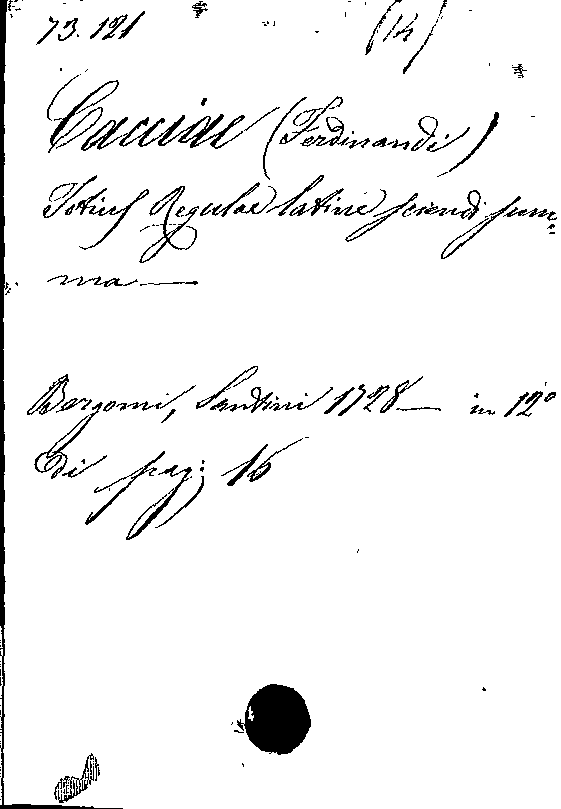 73.121 (14)
Cacciae (Ferdinandi)
Totius Regulae latine sciendi sum=
ma —
Bergomi, Santini 1728 — in 12°
di pag: 16